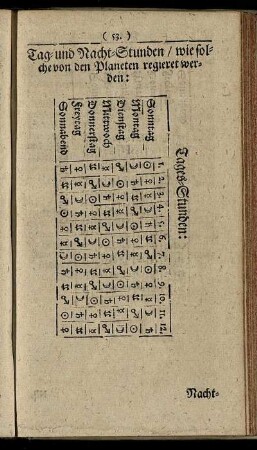 ( 53. )
Tag- und Nacht-Stunden / wie sol-
che von den Planeten regieret wer-
den:
Tages-Stunden:
1. 2. 3. 4. 5. 6. 7. 8. 9. 10. 11. 12.
Sonntag ☉ ♀ ☿ ☽ ♄ ♃ ♂ ☉ ♀ ☿ ☽ ♄
Montag ☽ ♄ ♃ ♂ ☉ ♀ ☿ ☽ ♄ ♃ ♂ ☉
Dienstag ♂ ☉ ♀ ☿ ☽ ♄ ♃ ♂ ☉ ♀ ☿ ☽
Mittwoch ☿ ☽ ♄ ♃ ♂ ☉ ♀ ☿ ☽ ♄ ♃ ♂
Donnerstag ♃ ♂ ☉ ♀ ☿ ☽ ♄ ♃ ♂ ☉ ♀ ☿
Freytag ♀ ☿ ☽ ♄ ♃ ♂ ☉ ♀ ☿ ☽ ♄ ♃
Sonnabend ♄ ♃ ♂ ☉ ♀ ☿ ☽ ♄ ♃ ♂ ☉ ♀
Nacht-